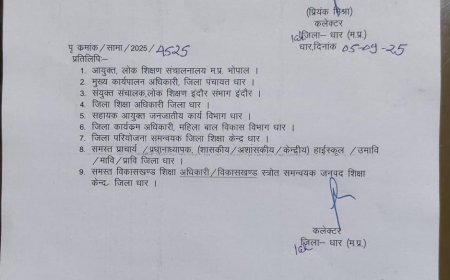 (प्रियंक मिश्रा)
कलेक्टर
जिला– धार (म.प्र.)
पृ कमांक / सामा / 2025 / 4525
धार, दिनांक 05-09-25
प्रतिलिपिः–
1. आयुक्त, लोक शिक्षण संचालनालय म.प्र. भोपाल ।
2. मुख्य कार्यपालन अधिकारी, जिला पंचायत धार ।
3. संयुक्त संचालक,लोक शिक्षण इंदौर संभाग इंदौर ।
4. जिला शिक्षा अधिकारी जिला धार ।
5. सहायक आयुक्त जनजातीय कार्य विभाग धार ।
6. जिला कार्यकम अधिकारी, महिला बाल विकास विभाग धार ।
7. जिला परियोजना समन्वयक जिला शिक्षा केन्द्र धार ।
8. समस्त प्राचार्य /प्रधानाध्यापक, (शासकीय/अशासकीय/केन्द्रीय) हाईस्कूल /उमावि
/मावि/प्रावि जिला धार ।
9. समस्त विकासखण्ड शिक्षा अधिकारी/विकासखण्ड स्त्रोत समन्वयक जनपद शिक्षा
केन्द- जिला धार ।
कलेक्टर
जिला– धार (म.प्र.)